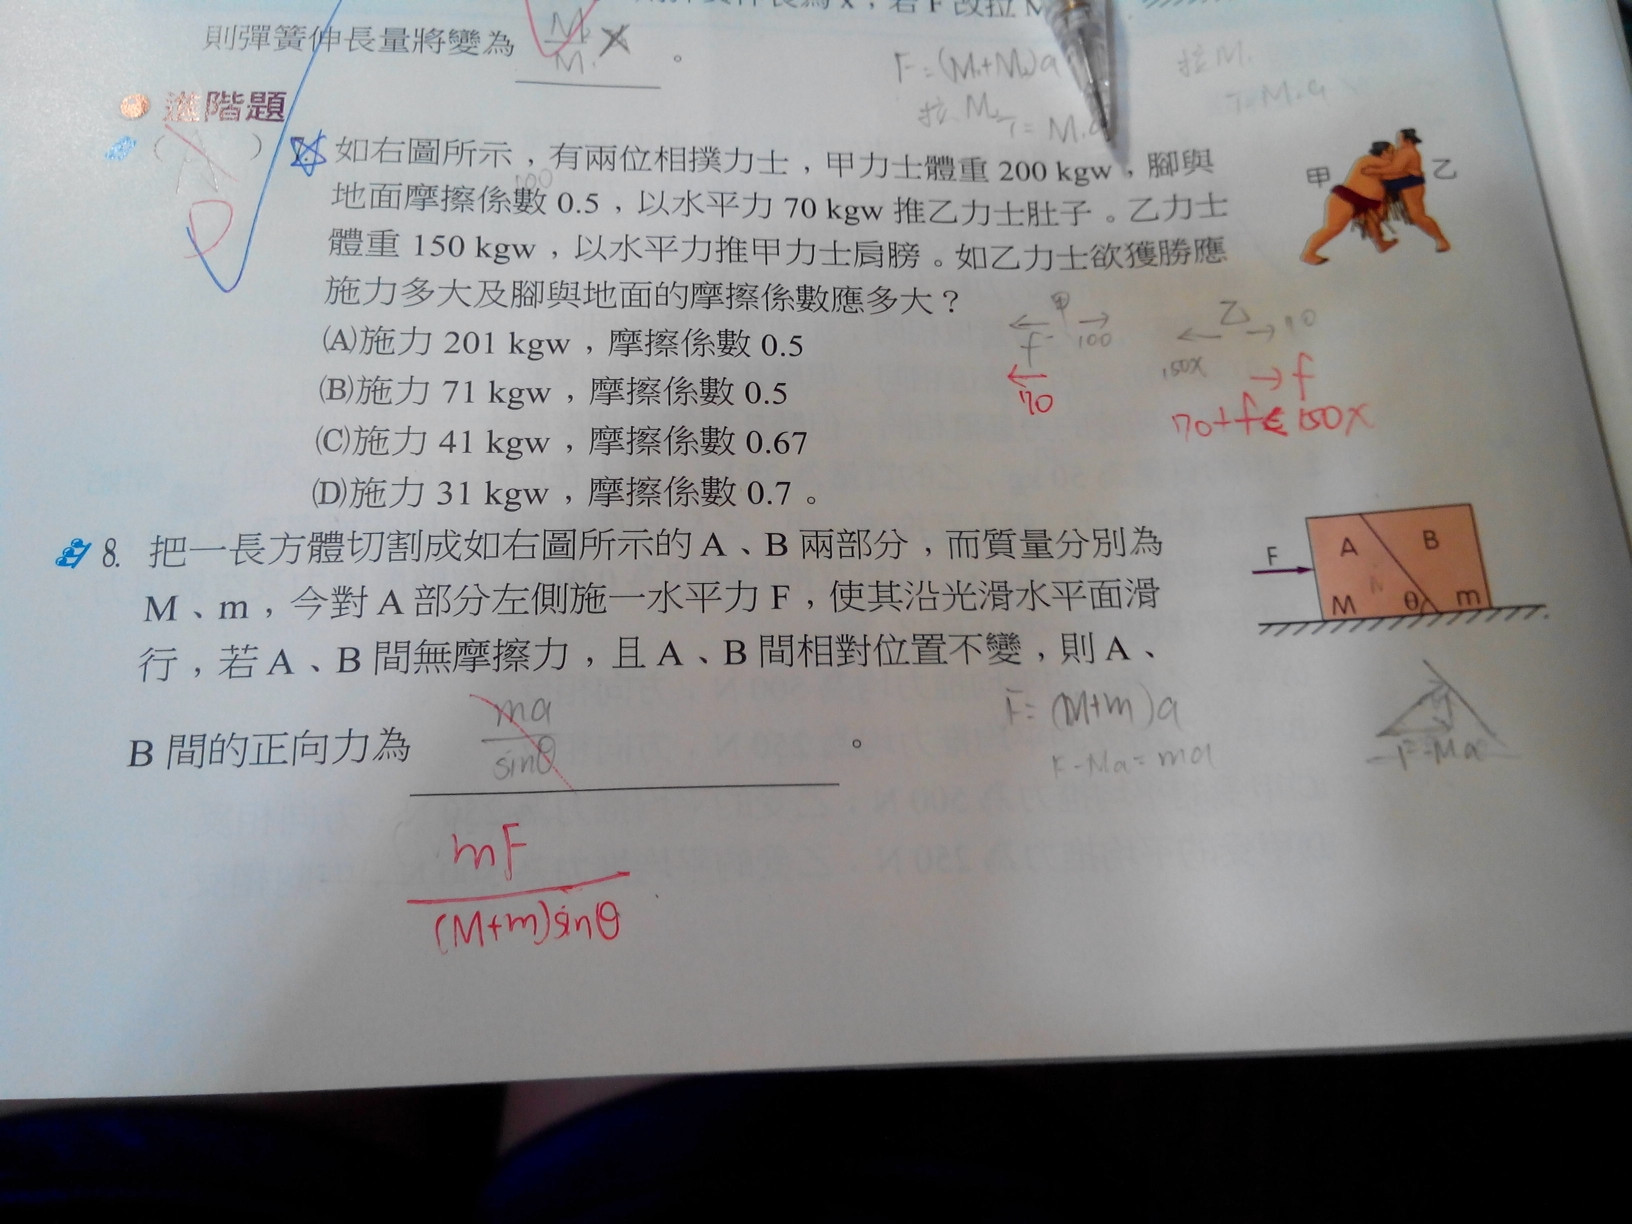 則彈簧伸長量將變為 M₂/M₁ X 。
F=(M₁+M₂)a
拉M₁
拉M₂
T=M₁a
進階題
(A)
D
如右圖所示，有兩位相撲力士，甲力士體重 200 kgw，腳與
100
地面摩擦係數 0.5，以水平力 70 kgw 推乙力士肚子。乙力士
體重 150 kgw，以水平力推甲力士肩膀。如乙力士欲獲勝應
施力多大及腳與地面的摩擦係數應多大？
(A)施力 201 kgw，摩擦係數 0.5
(B)施力 71 kgw，摩擦係數 0.5
(C)施力 41 kgw，摩擦係數 0.67
(D)施力 31 kgw，摩擦係數 0.7。
甲
乙
甲
f 100
70
乙
150X
→f
70+f≤150X
8. 把一長方體切割成如右圖所示的 A、B 兩部分，而質量分別為
M、m，今對 A 部分左側施一水平力 F，使其沿光滑水平面滑
行，若 A、B 間無摩擦力，且 A、B 間相對位置不變，則 A、
B 間的正向力為 ma/sinθ 。
F A B
M θ m
F=(M+m)a
F-Ma=ma
F-Ma
mF/(M+m)sinθ